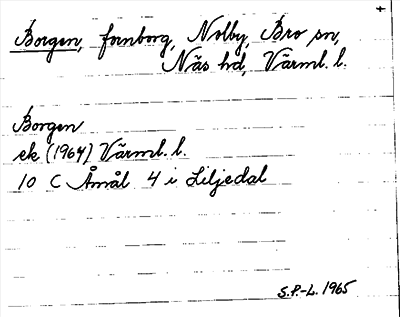 +
Borgen, fornborg, Nolby, Bro sn,
Näs hd, Värml. l.
Borgen
ek (1964) Värml. l.
10 C Åmål 4 i Liljedal
S.P.-L. 1965